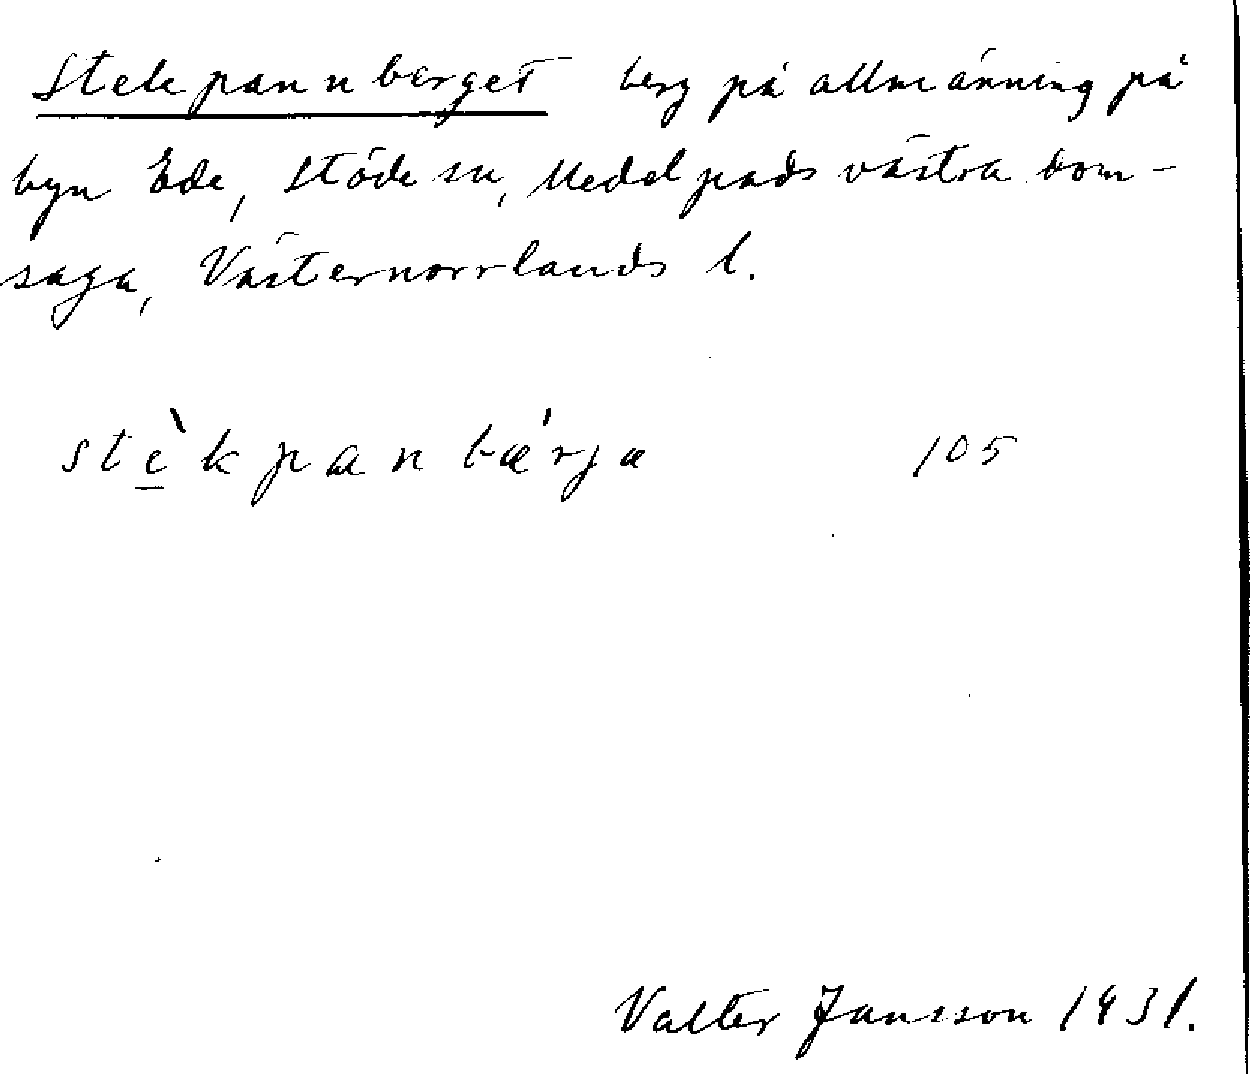 Stekpannberget berg på allmänning på
byn Ede, Stöde sn, Medelpads västra dom-
saga, Västernorrlands l.
stè̱kpanbæ´rja 105
Valter Jansson 1931.